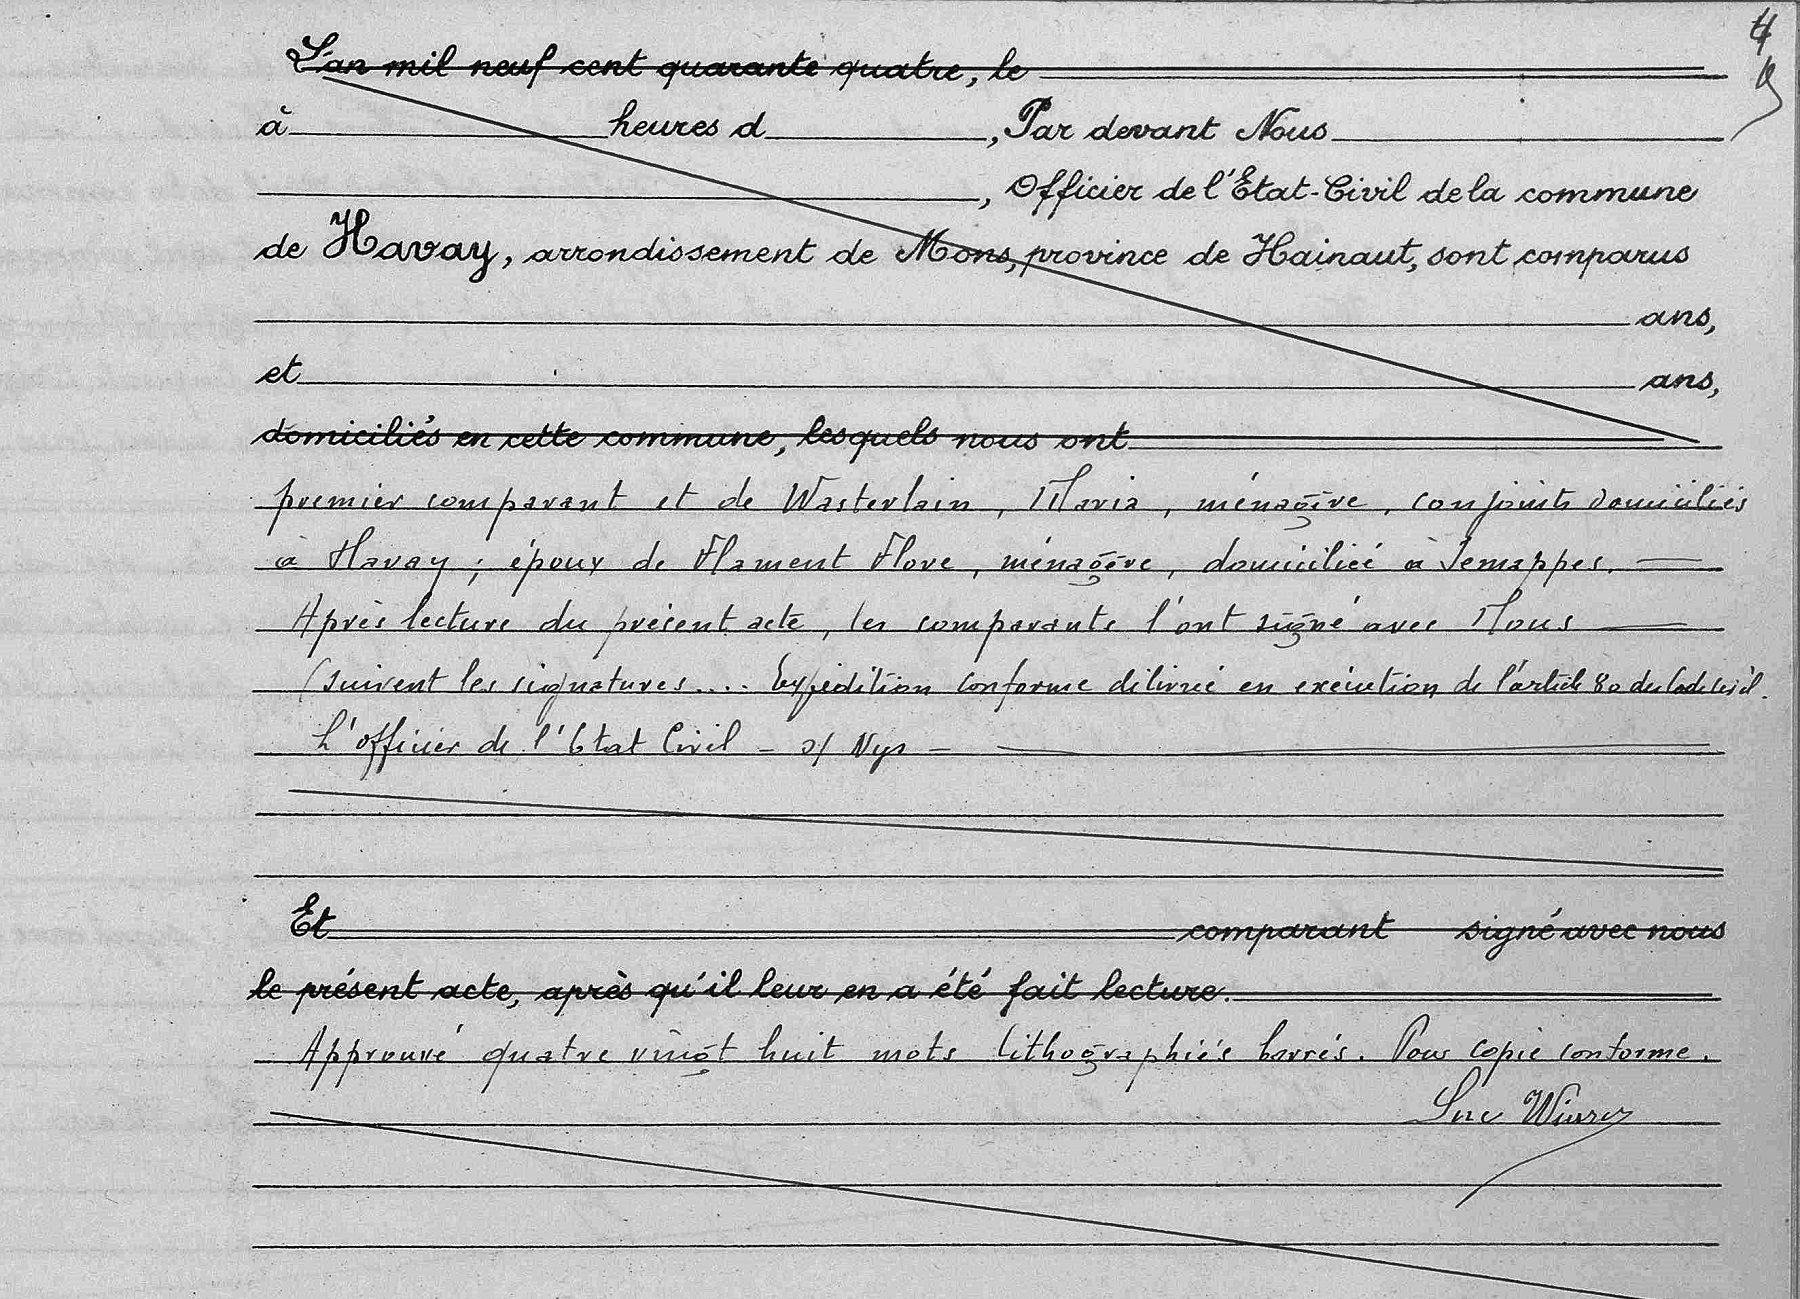 4
L'an mil neuf cent quarante quatre, le
à heures d , Par devant Nous
, Officier de l'Etat-Civil de la commune
de Havay, arrondissement de Mons, province de Hainaut, sont comparus
ans,
et ans,
domiciliés en cette commune, lesquels nous ont
premier comparant et de Wasterlain, Maria, ménagère, conjoints domiciliés
à Havay ; époux de Flament Flore, ménagère, domiciliée à Jemappes.
Après lecture du présent acte, les comparants l'ont signé avec Nous
(suivent les signatures.... Expédition conforme délivrée en exécution de l'article 80 du Code civil.
L'officier de l'Etat Civil - s/ Nys -
Et comparant signé avec nous
le présent acte, après qu'il leur en a été fait lecture.
Approuvé quatre vingt huit mots lithographiés barrés. Pour copie conforme.
Luc